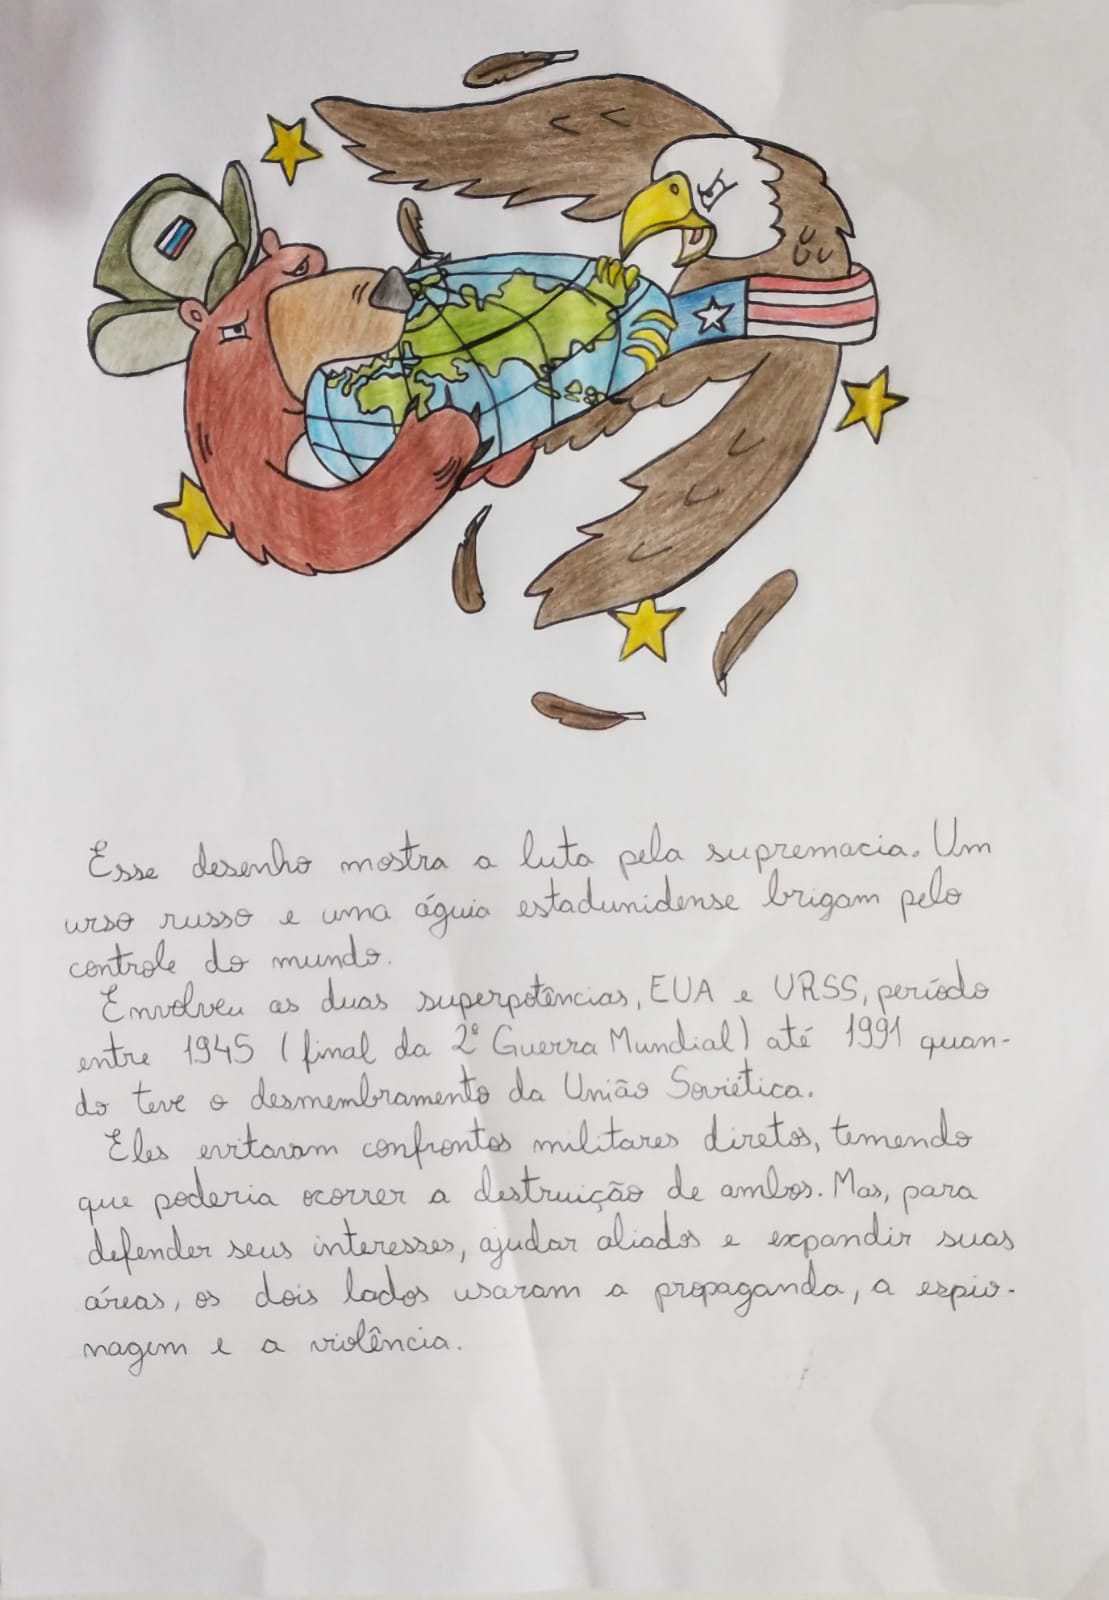 Esse desenho mostra a luta pela supremacia. Um
urso russo e uma águia estadunidense brigam pelo
controle do mundo.
Envolveu as duas superpotências, EUA e URSS, período
entre 1945 (final da 2ª Guerra Mundial) até 1991 quan-
do teve o desmembramento da União Soviética.
Eles evitaram confrontos militares diretos, temendo
que poderia ocorrer a destruição de ambos. Mas, para
defender seus interesses, ajudar aliados e expandir suas
áreas, os dois lados usaram a propaganda, a espio-
nagem e a violência.